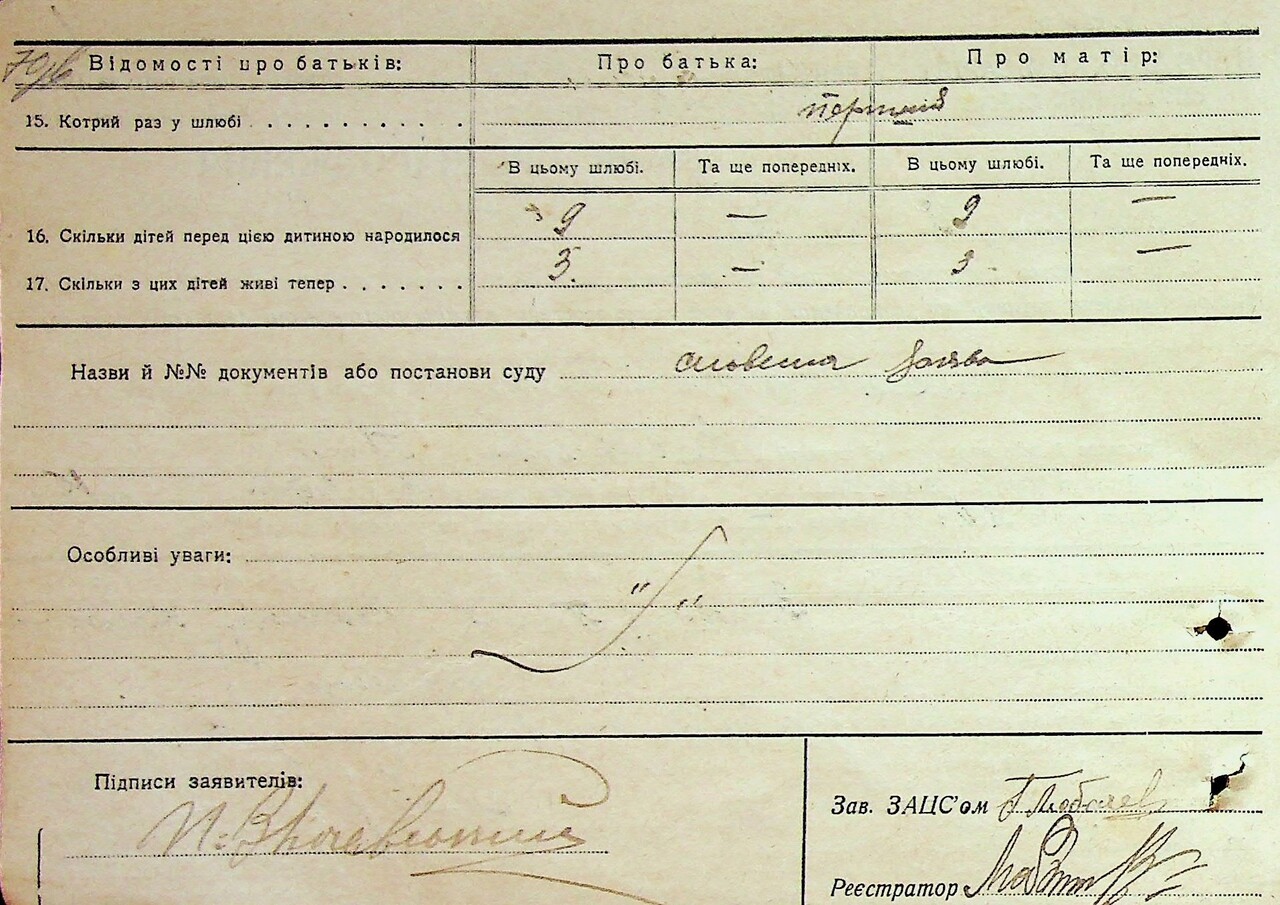 Відомості про батьків: Про батька: Про матір:
15. Котрий раз у шлюбі . . . . . . . . . . . перший
В цьому шлюбі. Та ще попередніх. В цьому шлюбі. Та ще попередніх.
16. Скільки дітей перед цією дитиною народилося 9 — 9 —
17. Скільки з цих дітей живі тепер . . . . . . . 3. — 3 —
Назви й №№ документів або постанови суду словесна заява
Особливі уваги:
" "
Підписи заявителів:
Зав. ЗАЦС'ом
Реєстратор